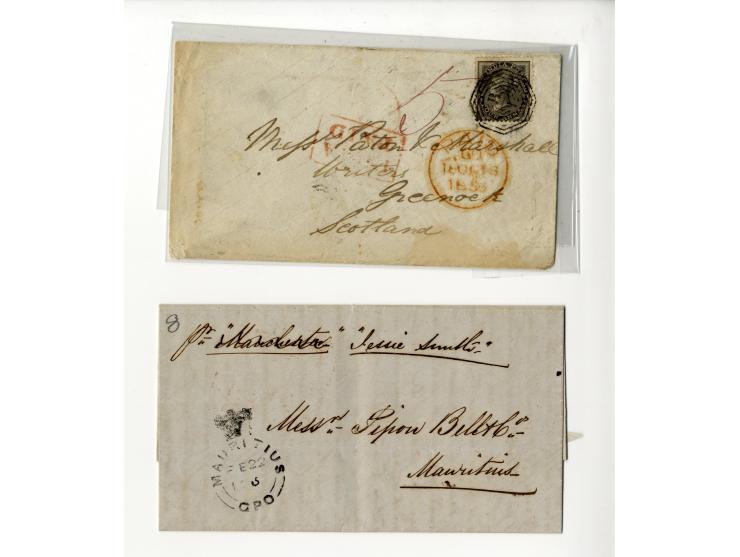 INDIA
5
PAID
Mess^rs Paton & Marshall
Writers
Greenock
Scotland
1856
8
p^r "Manchester" "Jessie Smith"
Mess^rs Pipon Bell & C^o
Mauritius
MAURITIUS
FE 22
GPO